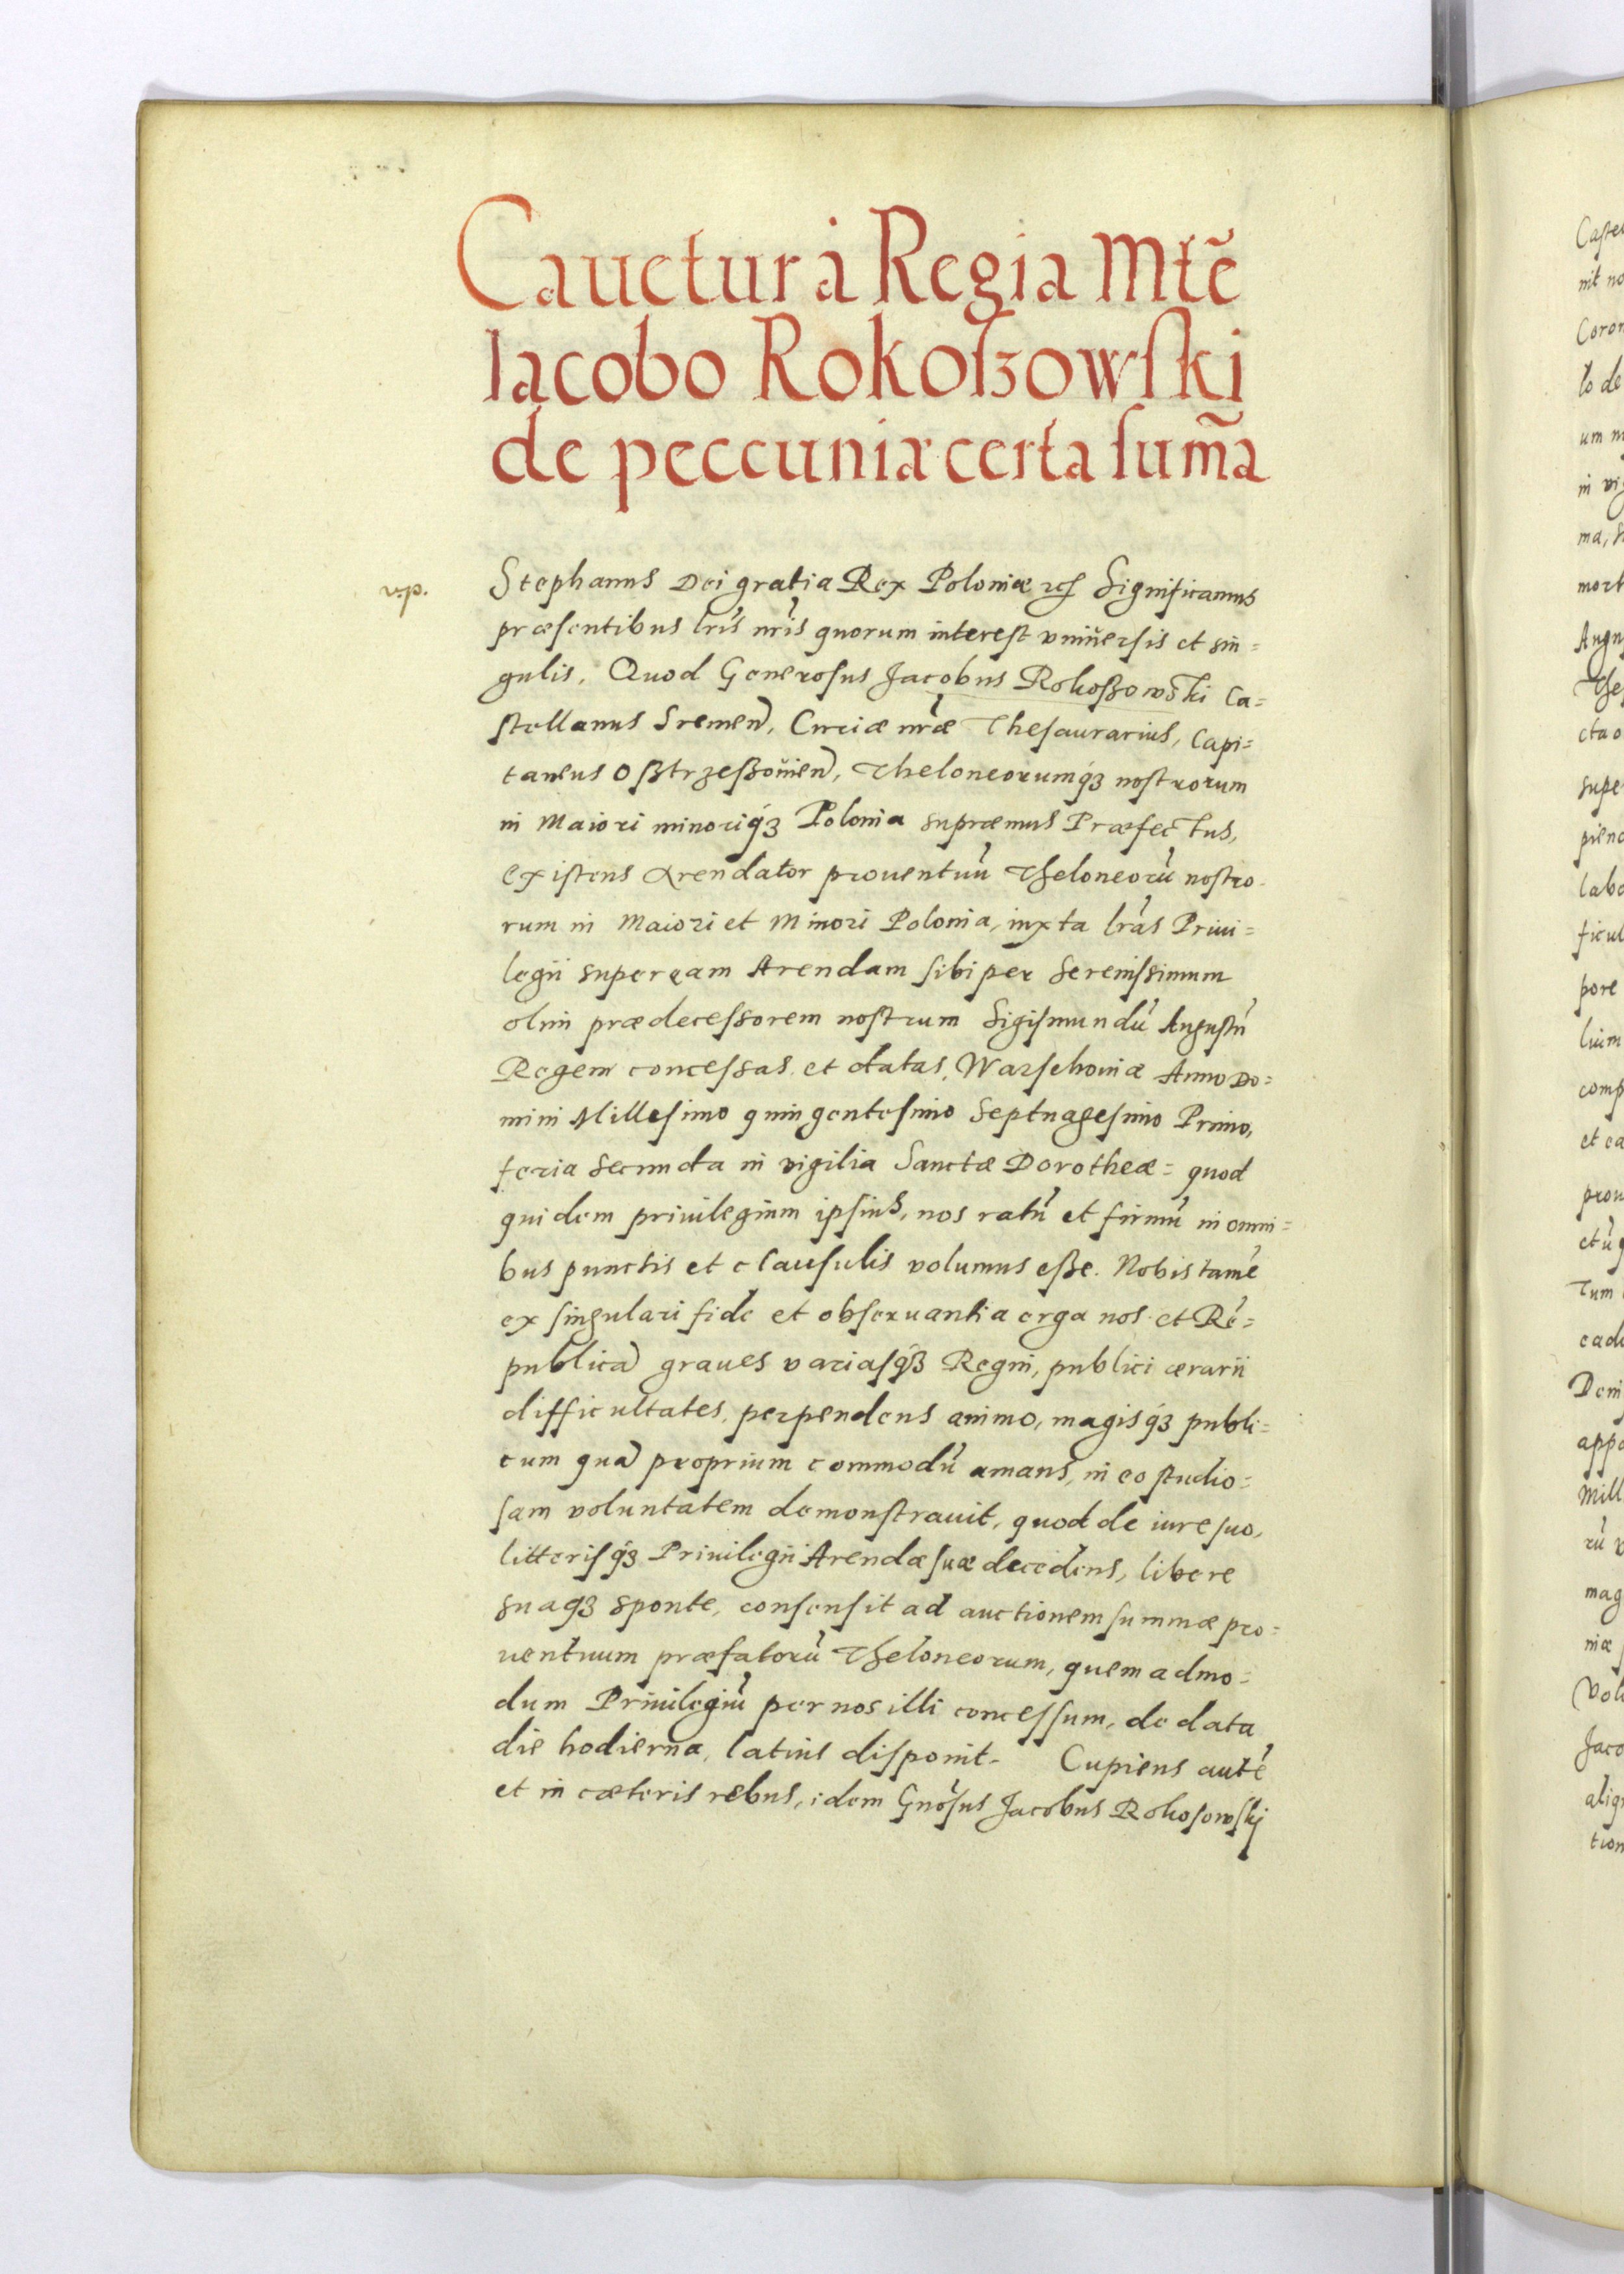 Cauetur à Regia Mtẽ
Iacobo Rokoßowſki
de peccuniæ certa ſum̃a
v.p.
Stephanus Dei gratia Rex Poloniæ ⁊cͣ Significamus
præſentibus lr̃is nr̃is quorum intereſt vniũerſis et sin=
gulis. Quod Generoſus Jacobus Rokoßowski Ca=
ſtellanus Sremeñ, Curiæ nr̃æ Theſaurarius, Capi=
taneus Oßtrzeßoũieñ, Theloneorumq́ꝫ noſtrorum
in Maiori minoriq́ꝫ Polonia supræmus Præfectus,
exiſtens Arendator prouentuũ Theloneorũ noſtro-
rum in Maiori et Minori Polonia, iuxta lr̃as Priui=
legii super eam Arendam ſibi per Sereniſsimum
olim prædeceſsorem noſtrum Sigiſmundũ Auguſtũ
Regem conceſsas et datas, Warſchouiæ Anno Do=
mini Milleſimo quingenteſimo Septuageſimo Primo,
feria Secunda in vigilia Sanctæ Dorotheæ= quod
quidem priuilegium ipſius, nos ratũ et firmũ in omni=
bus punctis et clauſulis volumus eße. Nobis tamẽ
ex ſingulari fide et obſeruantia erga nos et Rẽ=
publicã graues variaſq́ꝫ Regni, publici ærarii
difficultates, perpendens animo, magisq́ꝫ publi=
cum quã proprium commodũ amans, in eo ſtudio=
ſam voluntatem demonſtrauit, quod de iure ſuo,
litteriſq́ꝫ Priuilegii Arendæ ſuæ decedens, libere
suaqꝫ sponte, conſenſit ad auctionem ſummæ pro=
uentuum præfatorũ Theloneorum, quemadmo=
dum Priuilegiũ per nos illi conceſſum, de data
die hodierna, latius diſponit. Cupiens autẽ
et in cæteris rebus, idem Gnõſus Jacobus Rokoſowſkj